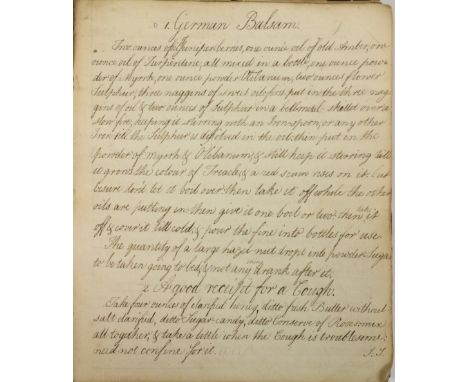 1. German Balsam.
Two ounces of Juniper berries, one ounce oil of old Amber, one
ounce oil of Turpentine, all mixed in a bottle, one ounce pow-
der of Myrrh, one ounce powder Olibanum, two ounces flower
Sulphur, three naggins of sweet oil, first put in the three nag
gins of oil & two ounces of Sulphur in a bellmetal skellet over a
slow fire, keeping it stirring with an Iron spoon, or any other
Iron till the Sulphur is disolved in the oil, then put in the
powder of myrrh & Olibanum, & still keep it stirring till
it grows the colour of Treacle, & a red scum rises on it, but
besure don't let it boil over then take it off while the other
oils are putting in then give it one boil or two then take it
off & cover it till cold, & pour the fine into bottles for use
The quantity of a large hazel nut dropt into powder Sugar
to be taken going to bed, & not any thing drank after it.
2. A good receipt for a Cough.
Take four ounces of clarified honey, ditto fresh Butter without
salt clarified, ditto Sugar candy, ditto Conserve of Rosemary
all together, & take a little when the Cough is troublesome
need not confine for it.